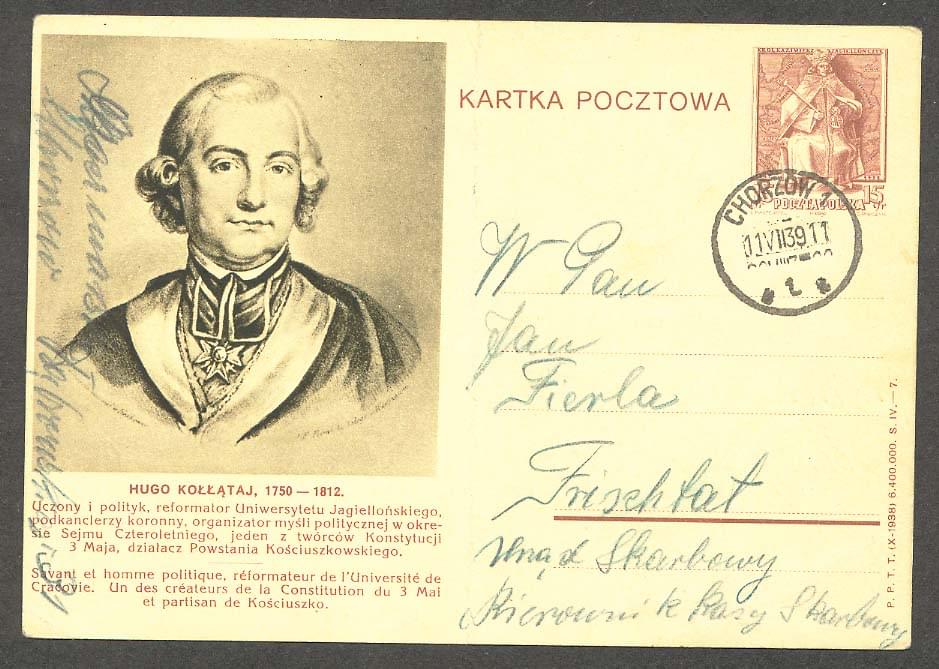 KARTKA POCZTOWA
KRÓL KAZIMIERZ JAGIELLOŃCZYK
15
POCZTA POLSKA
CHORZÓW 1
11 VII 39 11
W Pan
Jan
Fierla
Frischtat
Urząd Skarbowy
Kierownik Kasy Skarbowy
HUGO KOŁŁĄTAJ, 1750 — 1812.
Uczony i polityk, reformator Uniwersytetu Jagiellońskiego,
podkanclerzy koronny, organizator myśli politycznej w okre-
sie Sejmu Czteroletniego, jeden z twórców Konstytucji
3 Maja, działacz Powstania Kościuszkowskiego.
Savant et homme politique, réformateur de l'Université de
Cracovie. Un des créateurs de la Constitution du 3 Mai
et partisan de Kościuszko.
P. P. T. T. (X-1938) 6.400.000. S. IV. — 7.